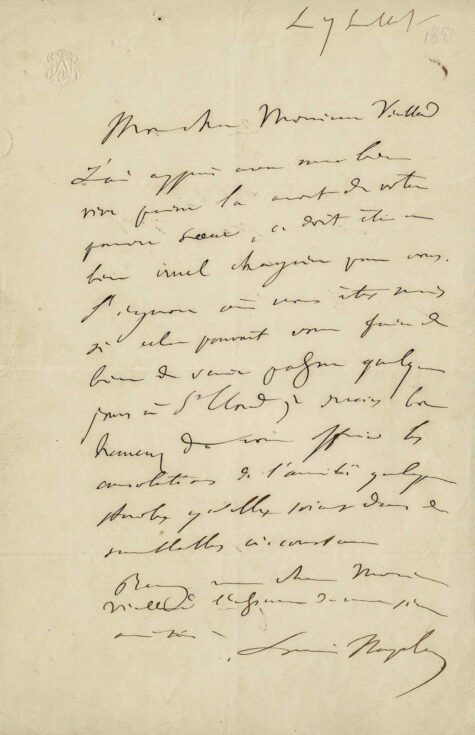 Le 7
185
Mon cher Monsieur Vieillard
J'ai appris avec une bien
vive peine la mort de votre
pauvre soeur, ce doit être un
bien cruel chagrin pour vous.
J'ignore où vous êtes mais
si cela pouvait vous faire du
bien de venir passer quelques
jours à St Cloud je serais bien
heureux de vous offrir les
consolations de l'amitié quelques
faibles qu'elles soient dans de
semblables circonstances
Recevez mon cher Monsieur
Vieillard l'assurance de mon
amitié
Louis Napoléon